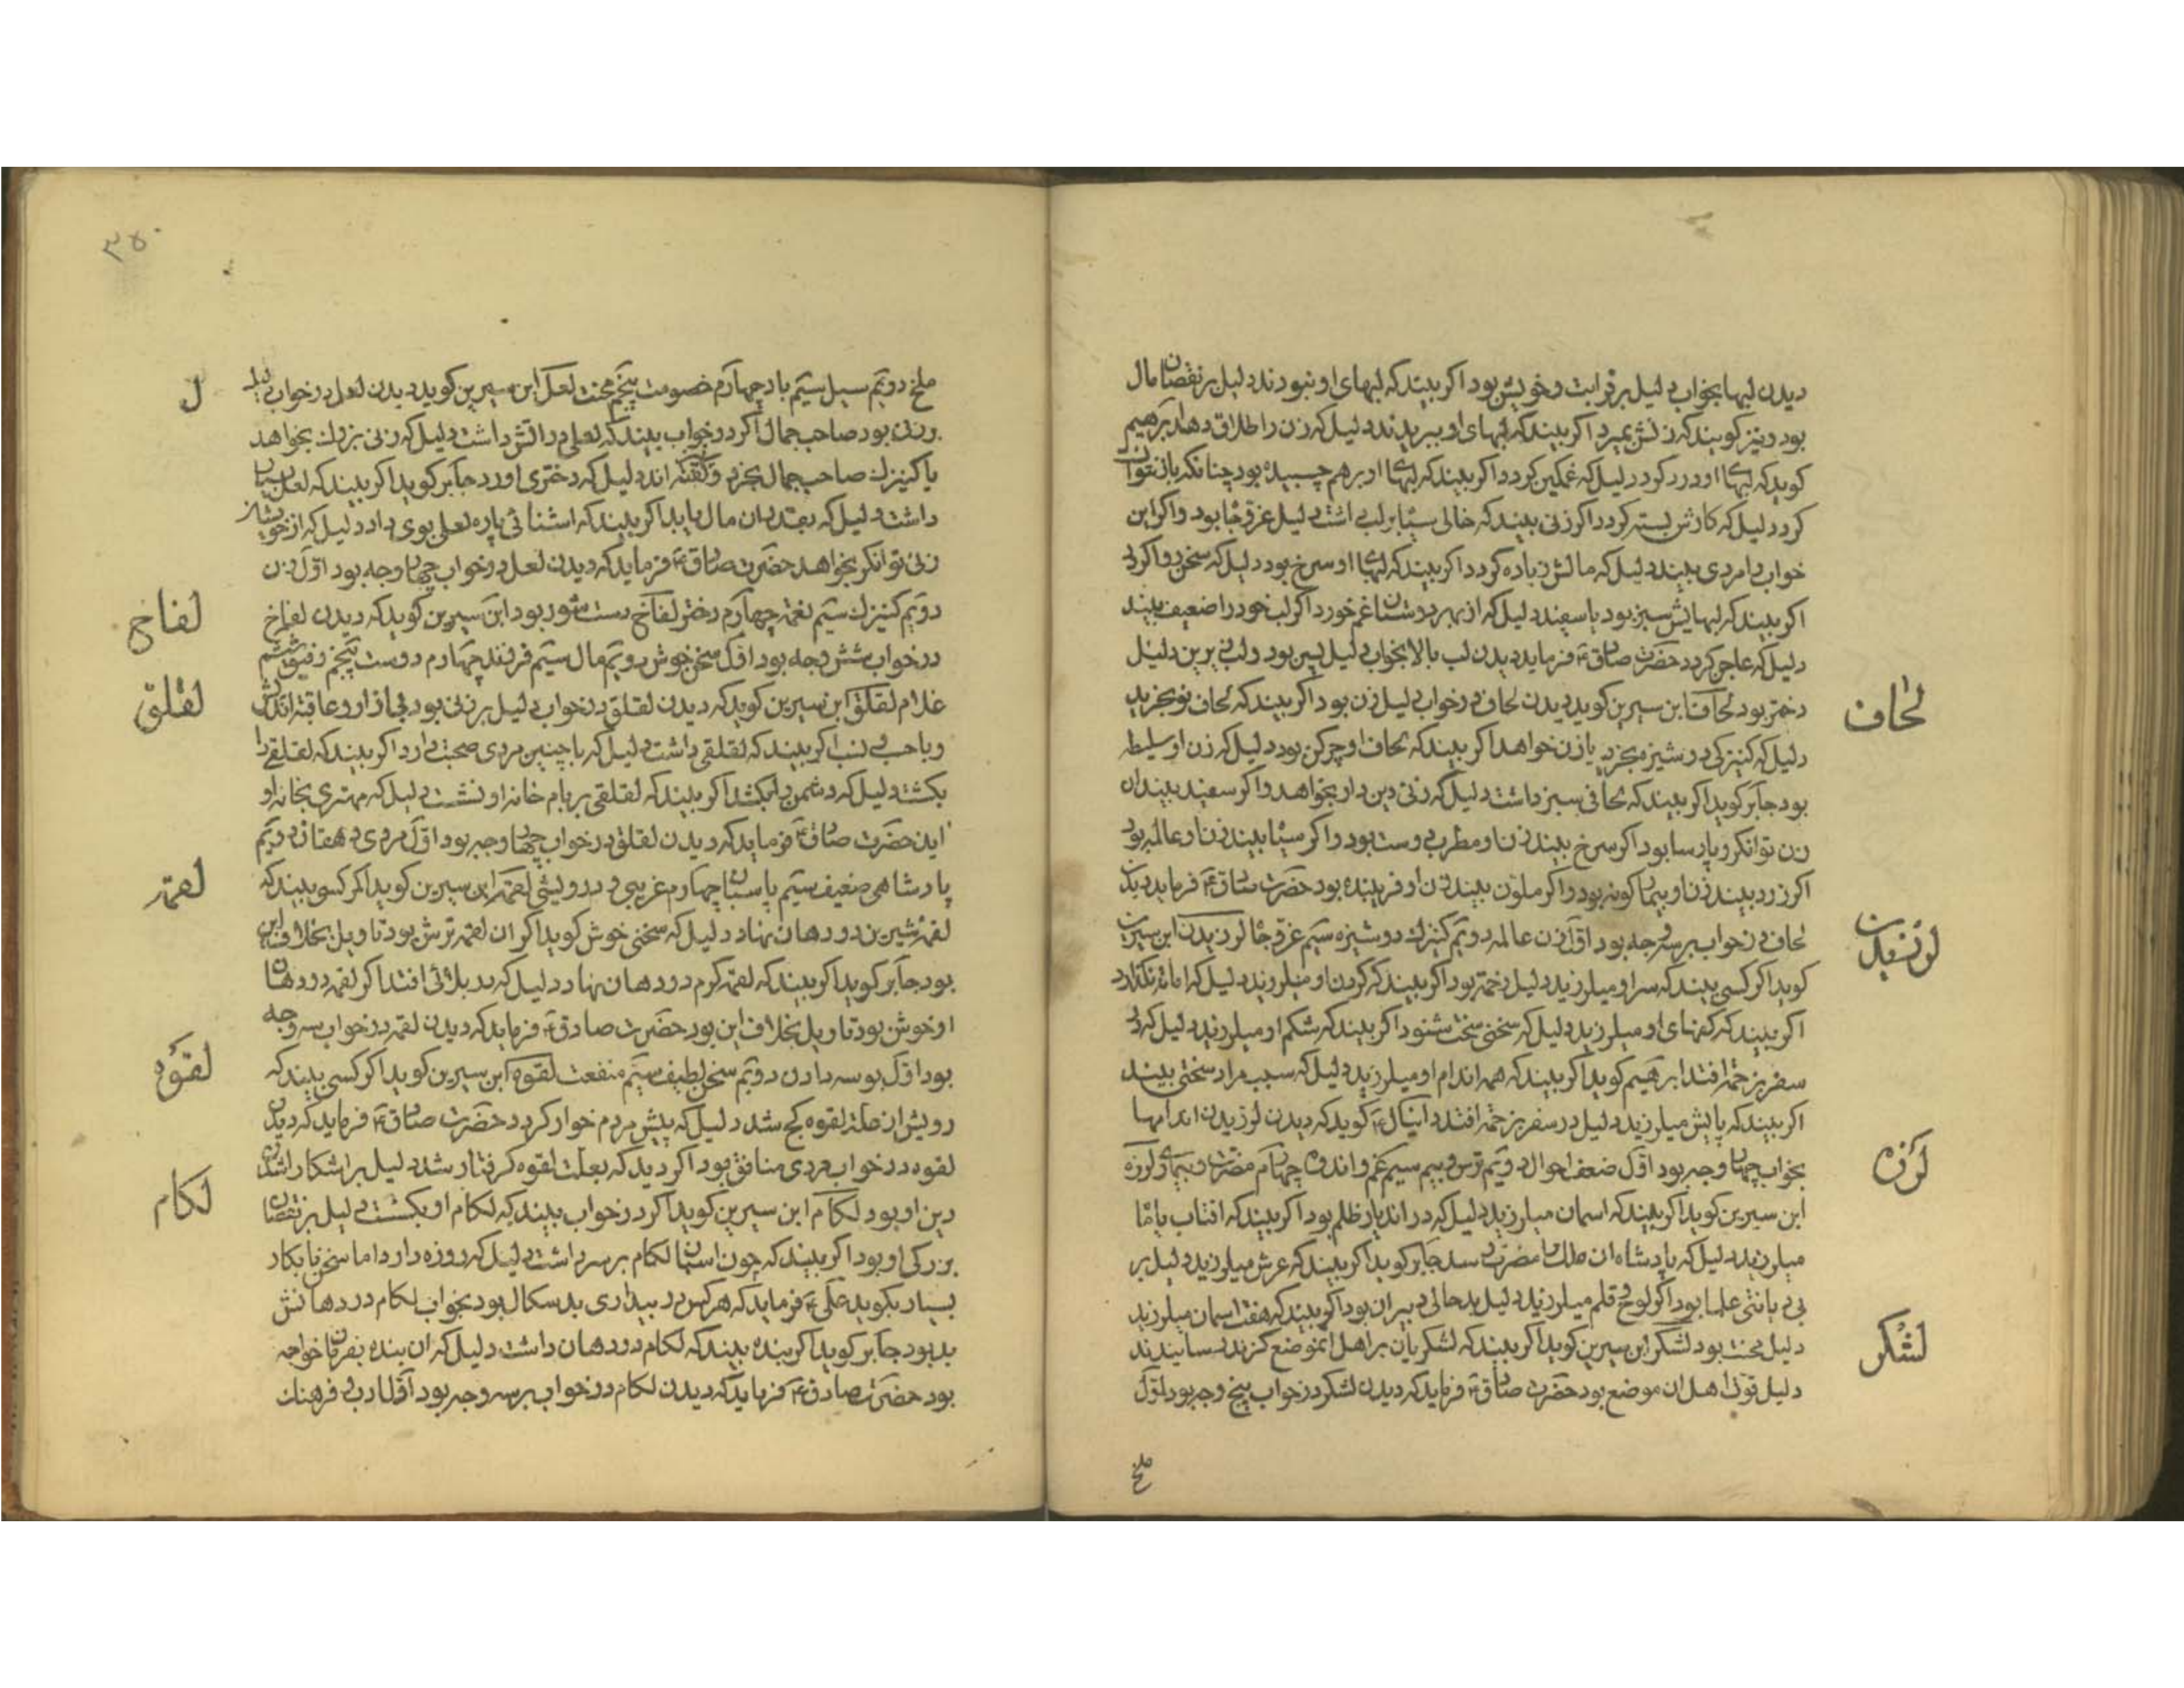 دیدن لبها بخواب دلیل بر قرابت و خویش بود اکر بیند که لبهای او نبودند دلیل بر نقصان مال
بود و نیز کویند که زنش بمیرد اکر بیند که لبهای او ببریدند دلیل که زن را طلاق دهد ابرهیم
کوید که لبهاء او درد کرد دلیل که غمکین کردد اکر بیند که لبهاء او برهم چسبیده بود چنانکه باز نتوان
کرد دلیل که کارش بسته کردد اکر زنی بیند که خالی سیاه بر لب داشت دلیل عز و جاه بود و اکر این
خواب را مردی بیند دلیل که مالش زیاده کردد اکر بیند که لبهاء او سرخ بود دلیل که سخن
اکر بیند که لبهایش سبز بود یا سفید دلیل که از بهر دوستان غم خورد اکر لب خود را ضعیف بیند
دلیل که عاجز کردد حضرت صادق ع فرماید دیدن لب بالا بخواب دلیل پسر بود و لب زیرین دلیل
دختر بود لحاف ابن سیرین کوید دیدن لحاف در خواب دلیل زن بود اکر بیند که لحاف نو بخرید
دلیل که کنیزکی دوشیزه بخرد یا زن خواهد اکر بیند که لحاف او چرکن بود دلیل که زن او سلیطه
بود جابر کوید اکر بیند که لحافی سبز داشت دلیل که زنی دین دار بخواهد و اکر سفید بیند ان
زن توانکر و پارسا بود اکر سرخ بیند زن او مطرب دوست بود و اکر سیاه بیند زن او عالمه بود
اکر زرد بیند زن او بیمار کونه بود و اکر ملون بیند زن او فریبنده بود حضرت صادق ع فرماید دیدن
لحاف در خواب بر سه وجه بود اول زن عالمه دویم کنیزك دوشیزه سیم عز و جاه لرزیدن ابن سیرین
کوید اکر کسی بیند که سر او میلرزید دلیل زحمت بود اکر بیند که کردن او میلرزید دلیل که امانت نکذارد
اکر بیند که کفهای او میلرزید دلیل که سخنی سخت شنود اکر بیند که شکم او میلرزید دلیل که در
سفر بزحمت افتد ابرهیم کوید اکر بیند که همه اندام او میلرزید دلیل که سبب مراد سختی بیند
اکر بیند که پایش میلرزید دلیل در سفر بزحمت افتد دانیال ع کوید که دیدن لرزیدن اندامها
بخواب چهار وجه بود اول ضعف احوال دویم ترس و بیم سیم غم و اندوه چهارم مضرت و بیماری لرزه
ابن سیرین کوید اکر بیند که اسمان میلرزید دلیل که در ان دیار ظلم بود اکر بیند که افتاب یا ماه
میلرزید دلیل که پادشاه ان ملك را مضرت رسد جابر کوید اکر بیند که عرش میلرزید دلیل بر
بی دیانتی علما بود اکر لوح و قلم میلرزید دلیل بدحالی دبیران بود اکر بیند که هفت اسمان میلرزید
دلیل محنت بود لشکر ابن سیرین کوید اکر بیند که لشکریان بر اهل انموضع کزند
دلیل اهل ان موضع بود حضرت صادق ع فرماید که دیدن لشکر در خواب پنج وجه بود اول
ملخ
لحاف
لرزیدن
لرزه
لشکر
۳۵۰
ملخ دویم سیل سیم باد چهارم خصومت پنجم محنت لعل ابن سیرین کوید دیدن لعل در خواب دلیل
بر زن بود صاحب جمال اکر در خواب بیند که لعلی داشت دلیل که زنی بزرك بخواهد
یا کنیزك صاحب جمال بخرد و کفته اند دلیل که دختری اورد جابر کوید اکر بیند که لعل بسیار
داشت دلیل که بقدر ان مال یابد اکر بیند که اشنائی پاره لعل بوی داد دلیل که از خویشان
زنی توانکر بخواهد حضرت صادق ع فرماید که دیدن لعل در خواب چهار وجه بود اول زن
دویم کنیزك سیم نعمت چهارم دختر لفاح بود ابن سیرین کوید که دیدن لفاح
در خواب شش وجه بود اول سخن خوش دویم مال سیم فرزند چهارم دوست پنجم رفیق ششم
غلام لقلق ابن سیرین کوید که دیدن لقلق در خواب دلیل بر زنی بود
اکر بیند که لقلقی داشت دلیل که با چنین مردی صحبت دارد اکر بیند که لقلقی را
بکشت دلیل که دشمن را بکشد اکر بیند که لقلقی بر بام خانه او نشست دلیل که مهتری بخانه او
اید حضرت صادق ع فرماید که دیدن لقلق در خواب چهار وجه بود اول مردی دهقان دویم
پادشاهی ضعیف سیم پاسبان چهارم غریبی و درویشی لقمه ابن سیرین کوید اکر کسی بیند که
لقمه شیرین در دهان نهاد دلیل که سخنی خوش کوید اکر ان لقمه ترش بود تاویل بخلاف این
بود جابر کوید اکر بیند که لقمه کرم در دهان نهاد دلیل که در بلائی افتد اکر لقمه در دهان
او خوش بود تاویل بخلاف این بود حضرت صادق ع فرماید که دیدن لقمه در خواب سه وجه
بود اول بوسه دادن دویم سخن لطیف سیم منفعت لقوه ابن سیرین کوید اکر کسی بیند که
رویش از علت لقوه کج شد دلیل که پیش مردم خوار کردد حضرت صادق ع فرماید که دیدن
لقوه در خواب مردی منافق بود اکر دید که بعلت لقوه کرفتار شد دلیل بر اشکارا شدن
دین او بود لکام ابن سیرین کوید اکر در خواب بیند که لکام او بکشست دلیل بر نقصان
بزرکی او بود اکر بیند که چون اسبان لکام بر سر داشت دلیل که روزه دارد اما سخن نابکار
بسیار بکوید علی ع فرماید که هر کس در بیداری بدسکال بود بخواب لکام در دهانش
بد بود جابر کوید اکر بنده بیند که لکام در دهان داشت دلیل که ان بنده بفرمان خواجه
بود حضرت صادق ع فرماید که دیدن لکام در خواب بر سه وجه بود اول ادب و فرهنك
ل
لفاح
لقلق
لقمه
لقوه
لکام